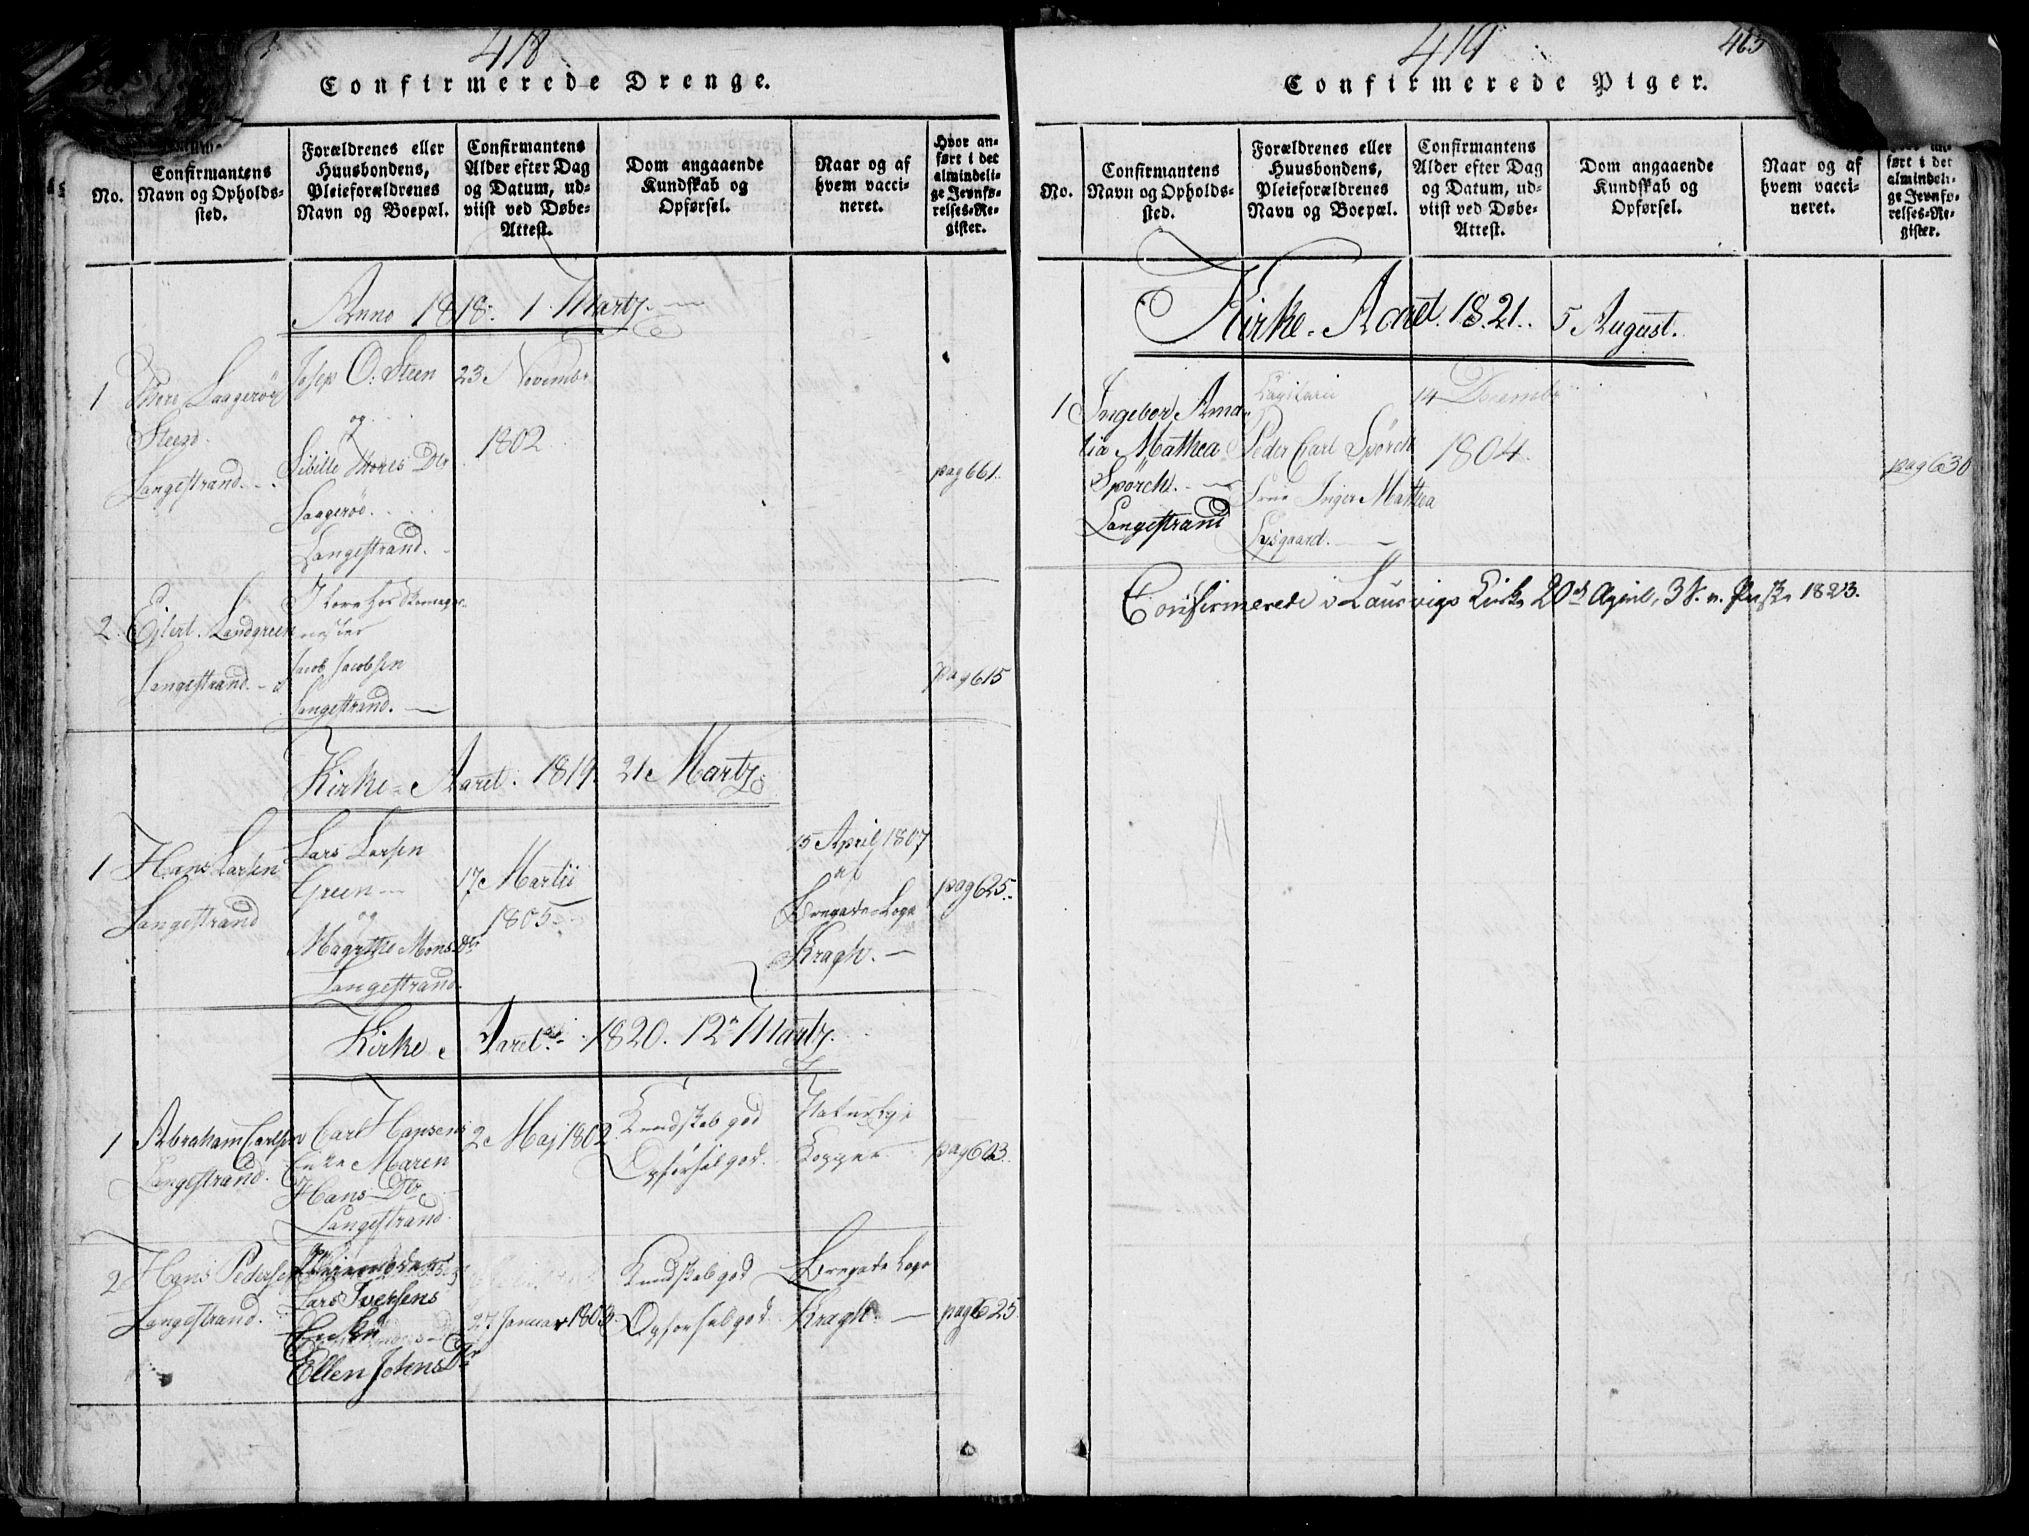 418
Confirmerede Drenge.
No.
Confirmantens
Navn og Opholds-
sted.
Forældrenes eller
Huusbondens,
Pleieforældrenes
Navn og Boepæl.
Confirmantens
Alder efter Dag
og Datum, ud-
viist ved Døbe-
Attest.
Dom angaaende
Kundskab og
Opførsel.
Naar og af
hvem vacci-
neret.
Hvor an-
ført i det
almindeli-
ge Jevnfø-
relses-Re-
gister.
Anno 1818. 1. Martz.
1
Thore Laagerøe
Steen
Langestrand.
Josep O: Steen
og
Sibille Thores Dtr
Laagerøe.
Langestrand.
23 Novembr
1802
pag 661.
2.
Ejlert Landgreen
Langestrand.
Jacob Jacobsen
Langestrand.
pag 615
Kirke-Aaret. 1819. 21 Martz
1
Hans Larsen
Langestrand
Lars Larsen
Green
og
Magrethe Mons Dtr
Langestrand.
17 Martii
1805
15 April 1807
af
Kragh.
pag 625.
Kirke Aaret 1820. 12 Martz.
1
Abraham Carlsen
Langestrand.
Carl Hansens
Enke Maren
Hans Dtr
Langestrand.
2 Maj 1802
Kundskab god
Opførsel god.
Naturlige
Kopper
pag 603.
2
Hans Pedersen
Langestrand.
Lars Iversens
Enke
Ellen Johns Dtr
27 Januar 1803
Kundskab god
Opførsel god.
Kragh.
pag 625
419
465
Confirmerede Piger.
No.
Confirmantens
Navn og Opholds-
sted.
Forældrenes eller
Huusbondens,
Pleieforældrenes
Navn og Boepæl.
Confirmantens
Alder efter Dag
og Datum, ud-
viist ved Døbe-
Attest.
Dom angaaende
Kundskab og
Opførsel.
Naar og af
hvem vacci-
neret.
ført i det
almindeli-
ge Jevnfø-
relses-Re-
gister.
Kirke-Aaret. 1821. 5 August.
1
Ingebor Ama-
lia Mathea
Spörck.
Langestrand
Peder Carl Spörck
Inger Mathea
Lysgaard.
14 Decembr
1804.
pag 630
Confirmerede i Laurvigs Kirke 20de April, 3 S. n. Paaske 1823.